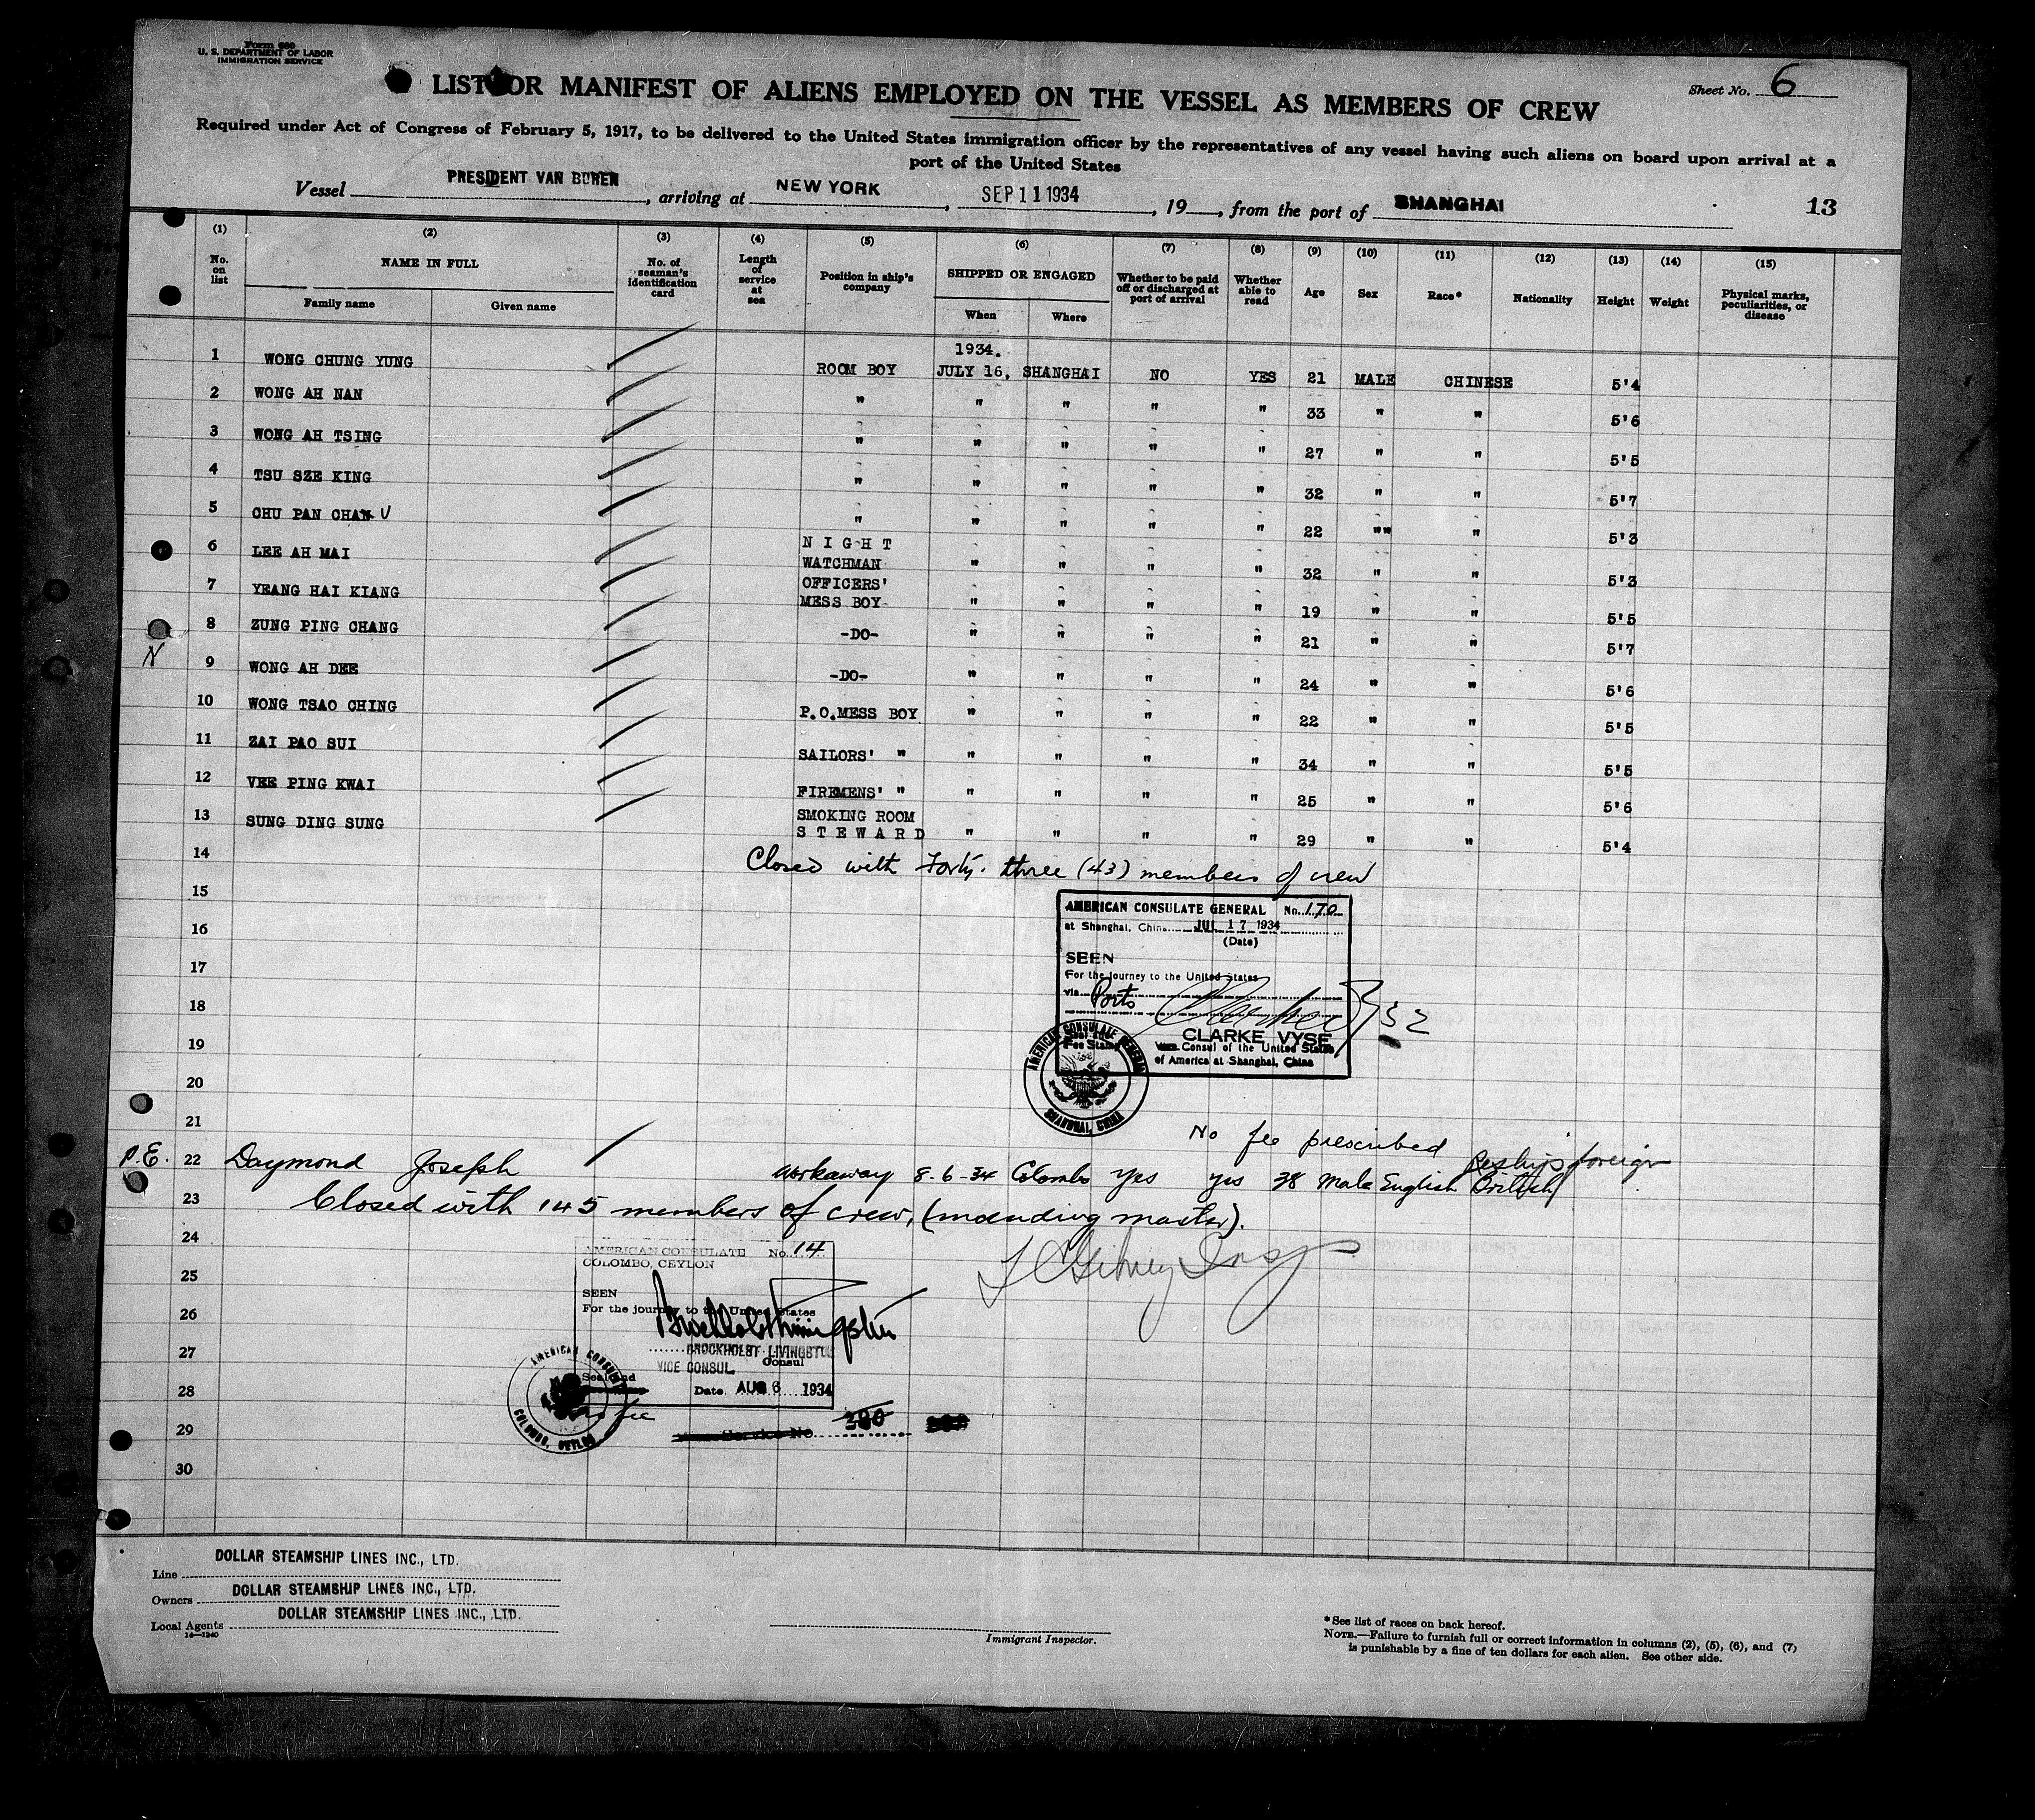 Form 680
U. S. DEPARTMENT OF LABOR
IMMIGRATION SERVICE
Sheet No. 6
LIST OR MANIFEST OF ALIENS EMPLOYED ON THE VESSEL AS MEMBERS OF CREW
Required under Act of Congress of February 5, 1917, to be delivered to the United States immigration officer by the representatives of any vessel having such aliens on board upon arrival at a
port of the United States
Vessel PRESIDENT VAN BUREN, arriving at NEW YORK, SEP 11 1934, 19, from the port of SHANGHAI 13
(1) (2) (3) (4) (5) (6) (7) (8) (9) (10) (11) (12) (13) (14) (15)
No. on list NAME IN FULL Family name Given name No. of seaman's identification card Length of service at sea Position in ship's company SHIPPED OR ENGAGED When Where Whether to be paid off or discharged at port of arrival Whether able to read Age Sex Race* Nationality Height Weight Physical marks, peculiarities, or disease
1934.
1 WONG CHUNG YUNG ROOM BOY JULY 16, SHANGHAI NO YES 21 MALE CHINESE 5'4
2 WONG AH NAN " " " " " 33 " " 5'6
3 WONG AH TSING " " " " " 27 " " 5'5
4 TSU SZE KING " " " " " 32 " " 5'7
5 CHU PAN CHAN " " " " " 22 "" " 5'3
6 LEE AH MAI NIGHT WATCHMAN " " " " 32 " " 5'3
7 YEANG HAI KIANG OFFICERS' MESS BOY " " " " 19 " " 5'5
8 ZUNG PING CHANG -DO- " " " " 21 " " 5'7
N 9 WONG AH DEE -DO- " " " " 24 " " 5'6
10 WONG TSAO CHING P.O.MESS BOY " " " " 22 " " 5'5
11 ZAI PAO SUI SAILORS' " " " " " 34 " " 5'5
12 VEE PING KWAI FIREMENS' " " " " " 25 " " 5'6
13 SUNG DING SUNG SMOKING ROOM STEWARD " " " " 29 " " 5'4
14 Closed with Forty-three (43) members of crew
15
16
17
18
19
20
21
AMERICAN CONSULATE GENERAL No. 170
at Shanghai, China JUL 17 1934
(Date)
SEEN
For the journey to the United States
via Ports
CLARKE VYSE
Vice Consul of the United States
of America at Shanghai, China
Fee Stamp
AMERICAN CONSULATE GENERAL
SHANGHAI, CHINA
No fee prescribed
Reships foreign
P.E. 22 Daymond Joseph workaway 8-6-34 Colombo Yes yes 38 Male English British
23 Closed with 145 members of crew, (including master).
24
25
26
27
28
29
30
AMERICAN CONSULATE No. 14
COLOMBO, CEYLON
SEEN
For the journey to the United States
BROCKHOLST LIVINGSTON
VICE CONSUL Consul
Seal and
Date AUG 6 1934
no fee
AMERICAN CONSULATE
COLOMBO, CEYLON
Service No. 380
Line DOLLAR STEAMSHIP LINES INC., LTD.
Owners DOLLAR STEAMSHIP LINES INC., LTD.
Local Agents DOLLAR STEAMSHIP LINES INC., LTD.
14—1240
Immigrant Inspector.
*See list of races on back hereof.
NOTE.—Failure to furnish full or correct information in columns (2), (5), (6), and (7)
is punishable by a fine of ten dollars for each alien. See other side.